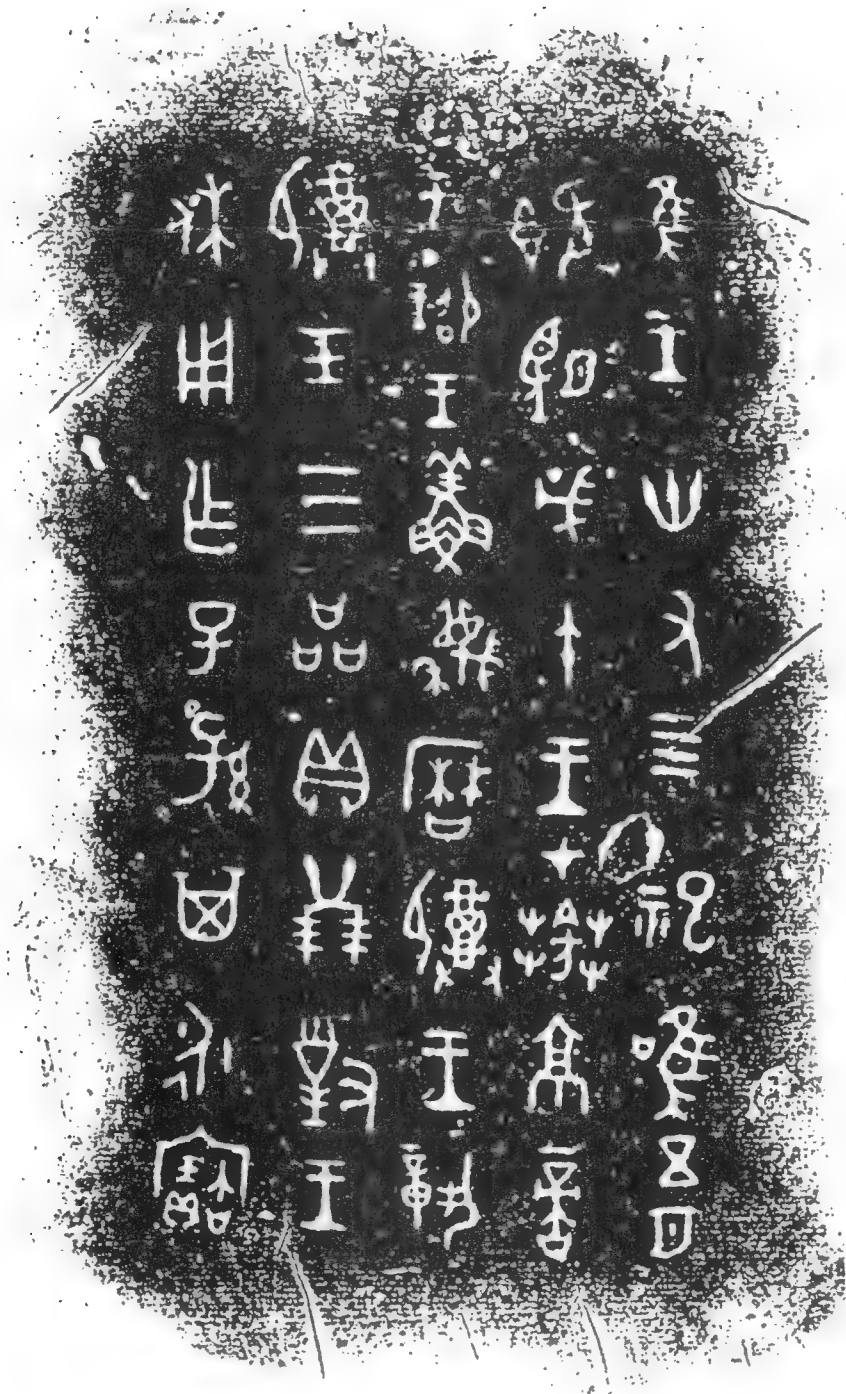 隹王卅又四祀唯五月
既望戊午王才𦯽京啻
于卲王鮮蔑曆祼王
祼玉三品貝廿朋對王
休用乍子孫其永寶